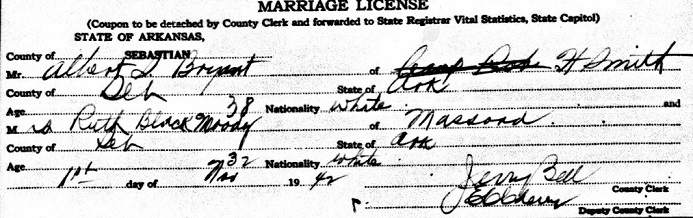 MARRIAGE LICENSE
(Coupon to be detached by County Clerk and forwarded to State Registrar Vital Statistics, State Capitol)
STATE OF ARKANSAS,
County of SEBASTIAN
Mr. Albert S. Bryant of Ft Smith
County of Seb State of Ark
Age 38 Nationality White and
M rs Ruth Black Moody of Massard
County of Seb State of Ark
Age 32 Nationality White
1st day of Nov 19 42
Jerry Bell
County Clerk
Deputy County Clerk